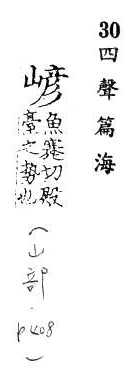 30四聲篇海
嵃
魚蹇切殿
臺之勢也
(山部 p408)